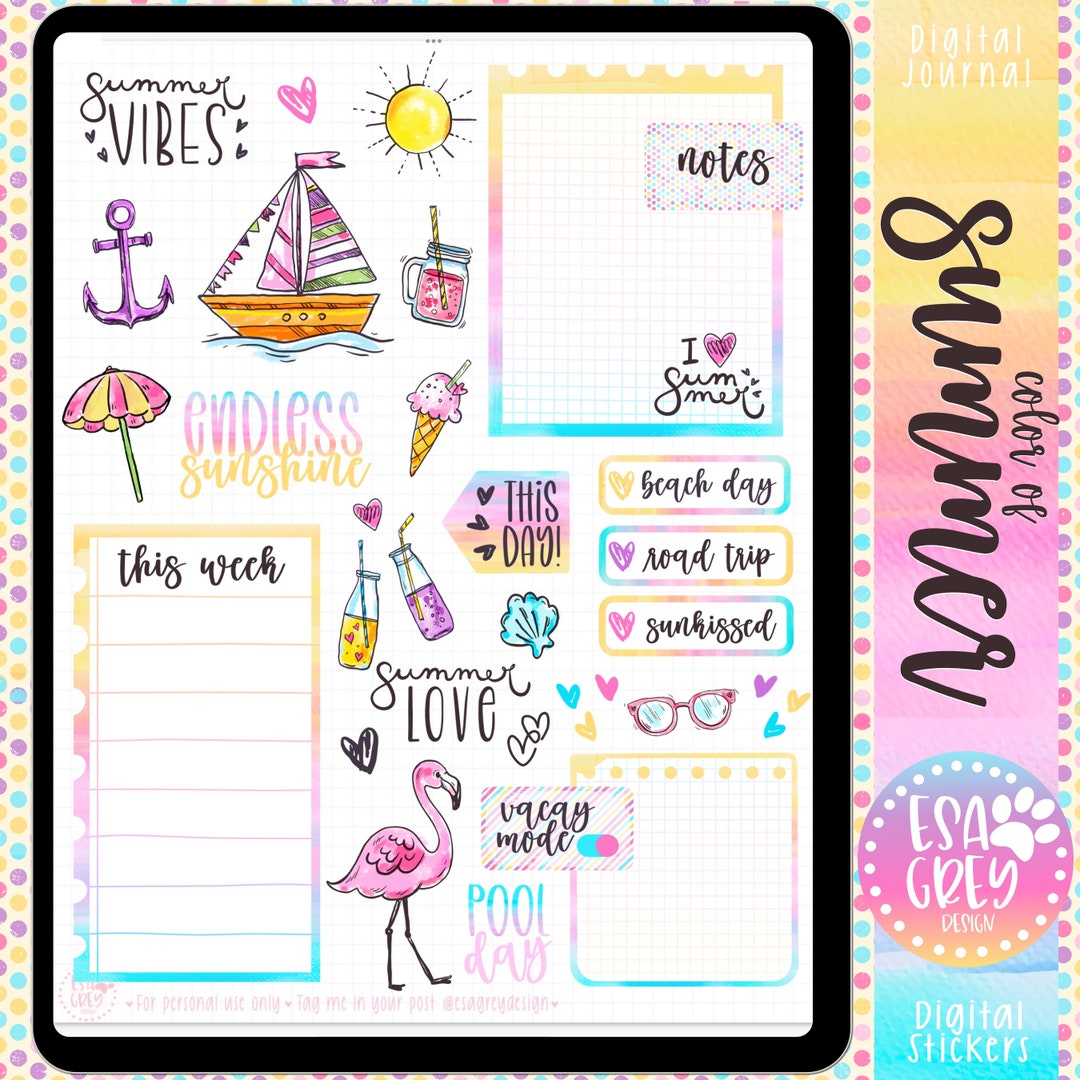 summer
VIBES
notes
I
Sum
mer
ENDLESS
sunshine
THIS
DAY!
beach day
road trip
sunkissed
this week
summer
LOVE
vacay
mode
POOL
day
ESA
GREY
DESIGN
For personal use only ♥ Tag me in your post @esagreydesign
Digital
Journal
color of
Summer
ESA
GREY
DESIGN
Digital
Stickers